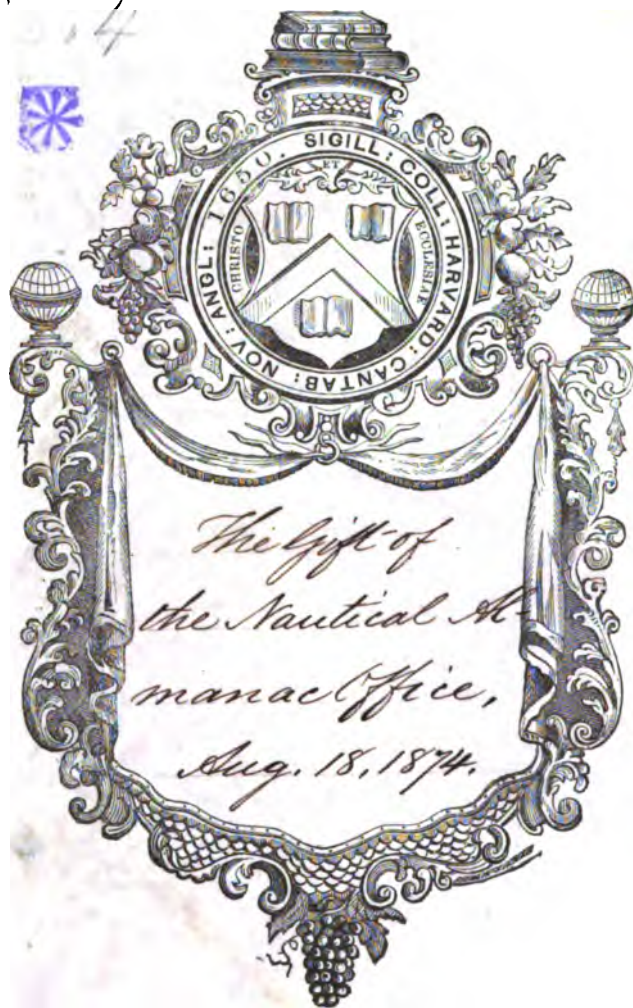 14
SIGILL: COLL: HARVARD: CANTAB: NOV: ANGL: 1650.
ET
CHRISTO
ECCLESIAE
The Gift of
the Nautical Al-
manac Office,
Aug. 18, 1874.